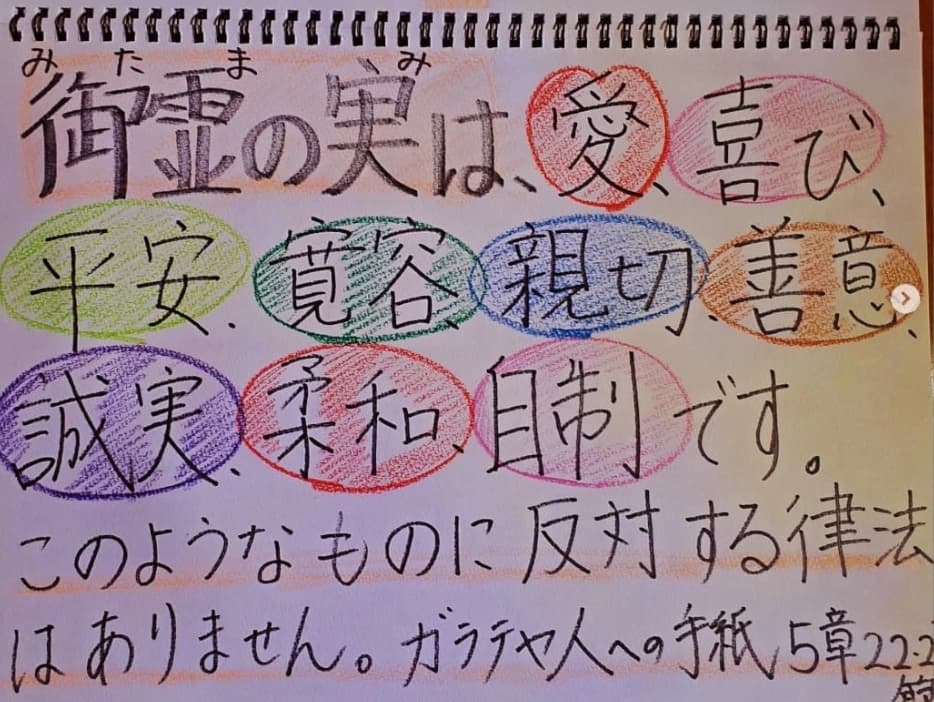 みたまみ
御霊の実は、愛、喜び、
平安、寛容、親切、善意、
誠実、柔和、自制です。
このようなものに反対する律法
はありません。ガラテヤ人への手紙5章22-2
節